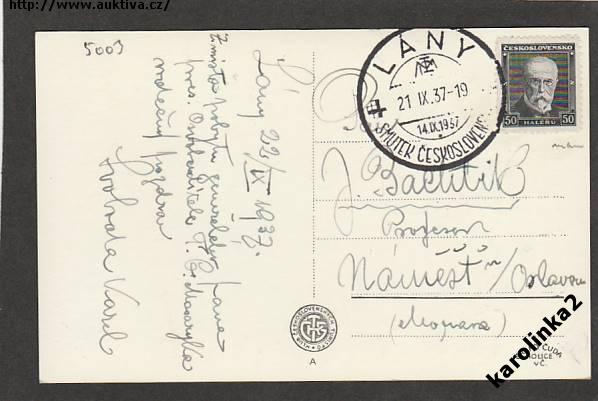 http://www.auktiva.cz/
5003
Lány 22/IX 1937.
Z místa pobytu zemřelého pana
pres. Osvoboditele T. G. Masaryka
srdečný pozdrav
Svoboda Karel
LÁNY
21 IX. 37-19
14.IX.1937
SMUTEK ČESKOSLOVENSKA
ČESKOSLOVENSKO
50 HALÉŘŮ 50
J.
Profesor
Náměšť n/Oslavou
(Morava)
KLUB ČESKOSLOVENSKÝCH TURISTŮ
A
ČUDA
HOLICE
v Č.
karolinka2